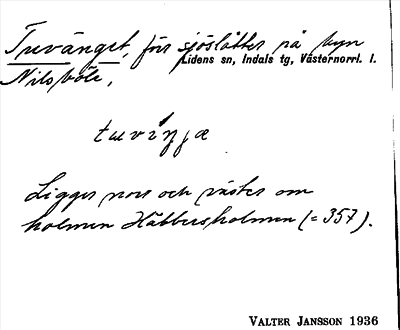 Tuvänget, förr sjöslåtter på byn
Lidens sn, Indals tg, Västernorrl. l.
Nilsböle,
tuviŋ̍ʒæ
Ligger norr och väster om
holmen Håbbersholmen (= 357).
VALTER JANSSON 1936